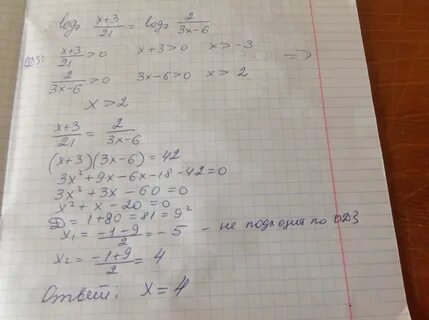 log₇ (x+3)/21 = log₇ 2/(3x-6)
ОДЗ: (x+3)/21 >0 x+3>0 x>-3 =>
2/(3x-6) >0 3x-6>0 x>2
x>2
(x+3)/21 = 2/(3x-6)
(x+3)(3x-6)=42
3x²+9x-6x-18-42=0
3x²+3x-60=0
x²+x-20=0
D=1+80=81=9²
x₁=(-1-9)/2=-5 - не подходит по ОДЗ
x₂=(-1+9)/2=4
Ответ: x=4